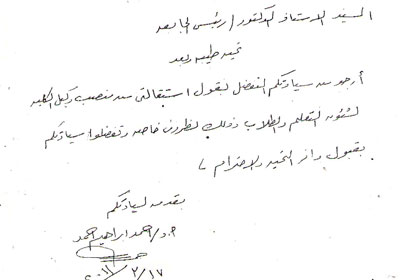 السيد الاستاذ الدكتور / رئيس الجامعه
تحيه طيبه وبعد
أرجو من سيادتكم التفضل بقبول استقالتى من منصب وكيل الكليه
لشئون التعليم والطلاب وذلك لظروف خاصه وتفضلوا سيادتكم
بقبول وافر التحيه والاحترام ،
مقدمه لسيادتكم
أ.د/ احمد ابراهيم احمد
٢٠١١/٣/١٧